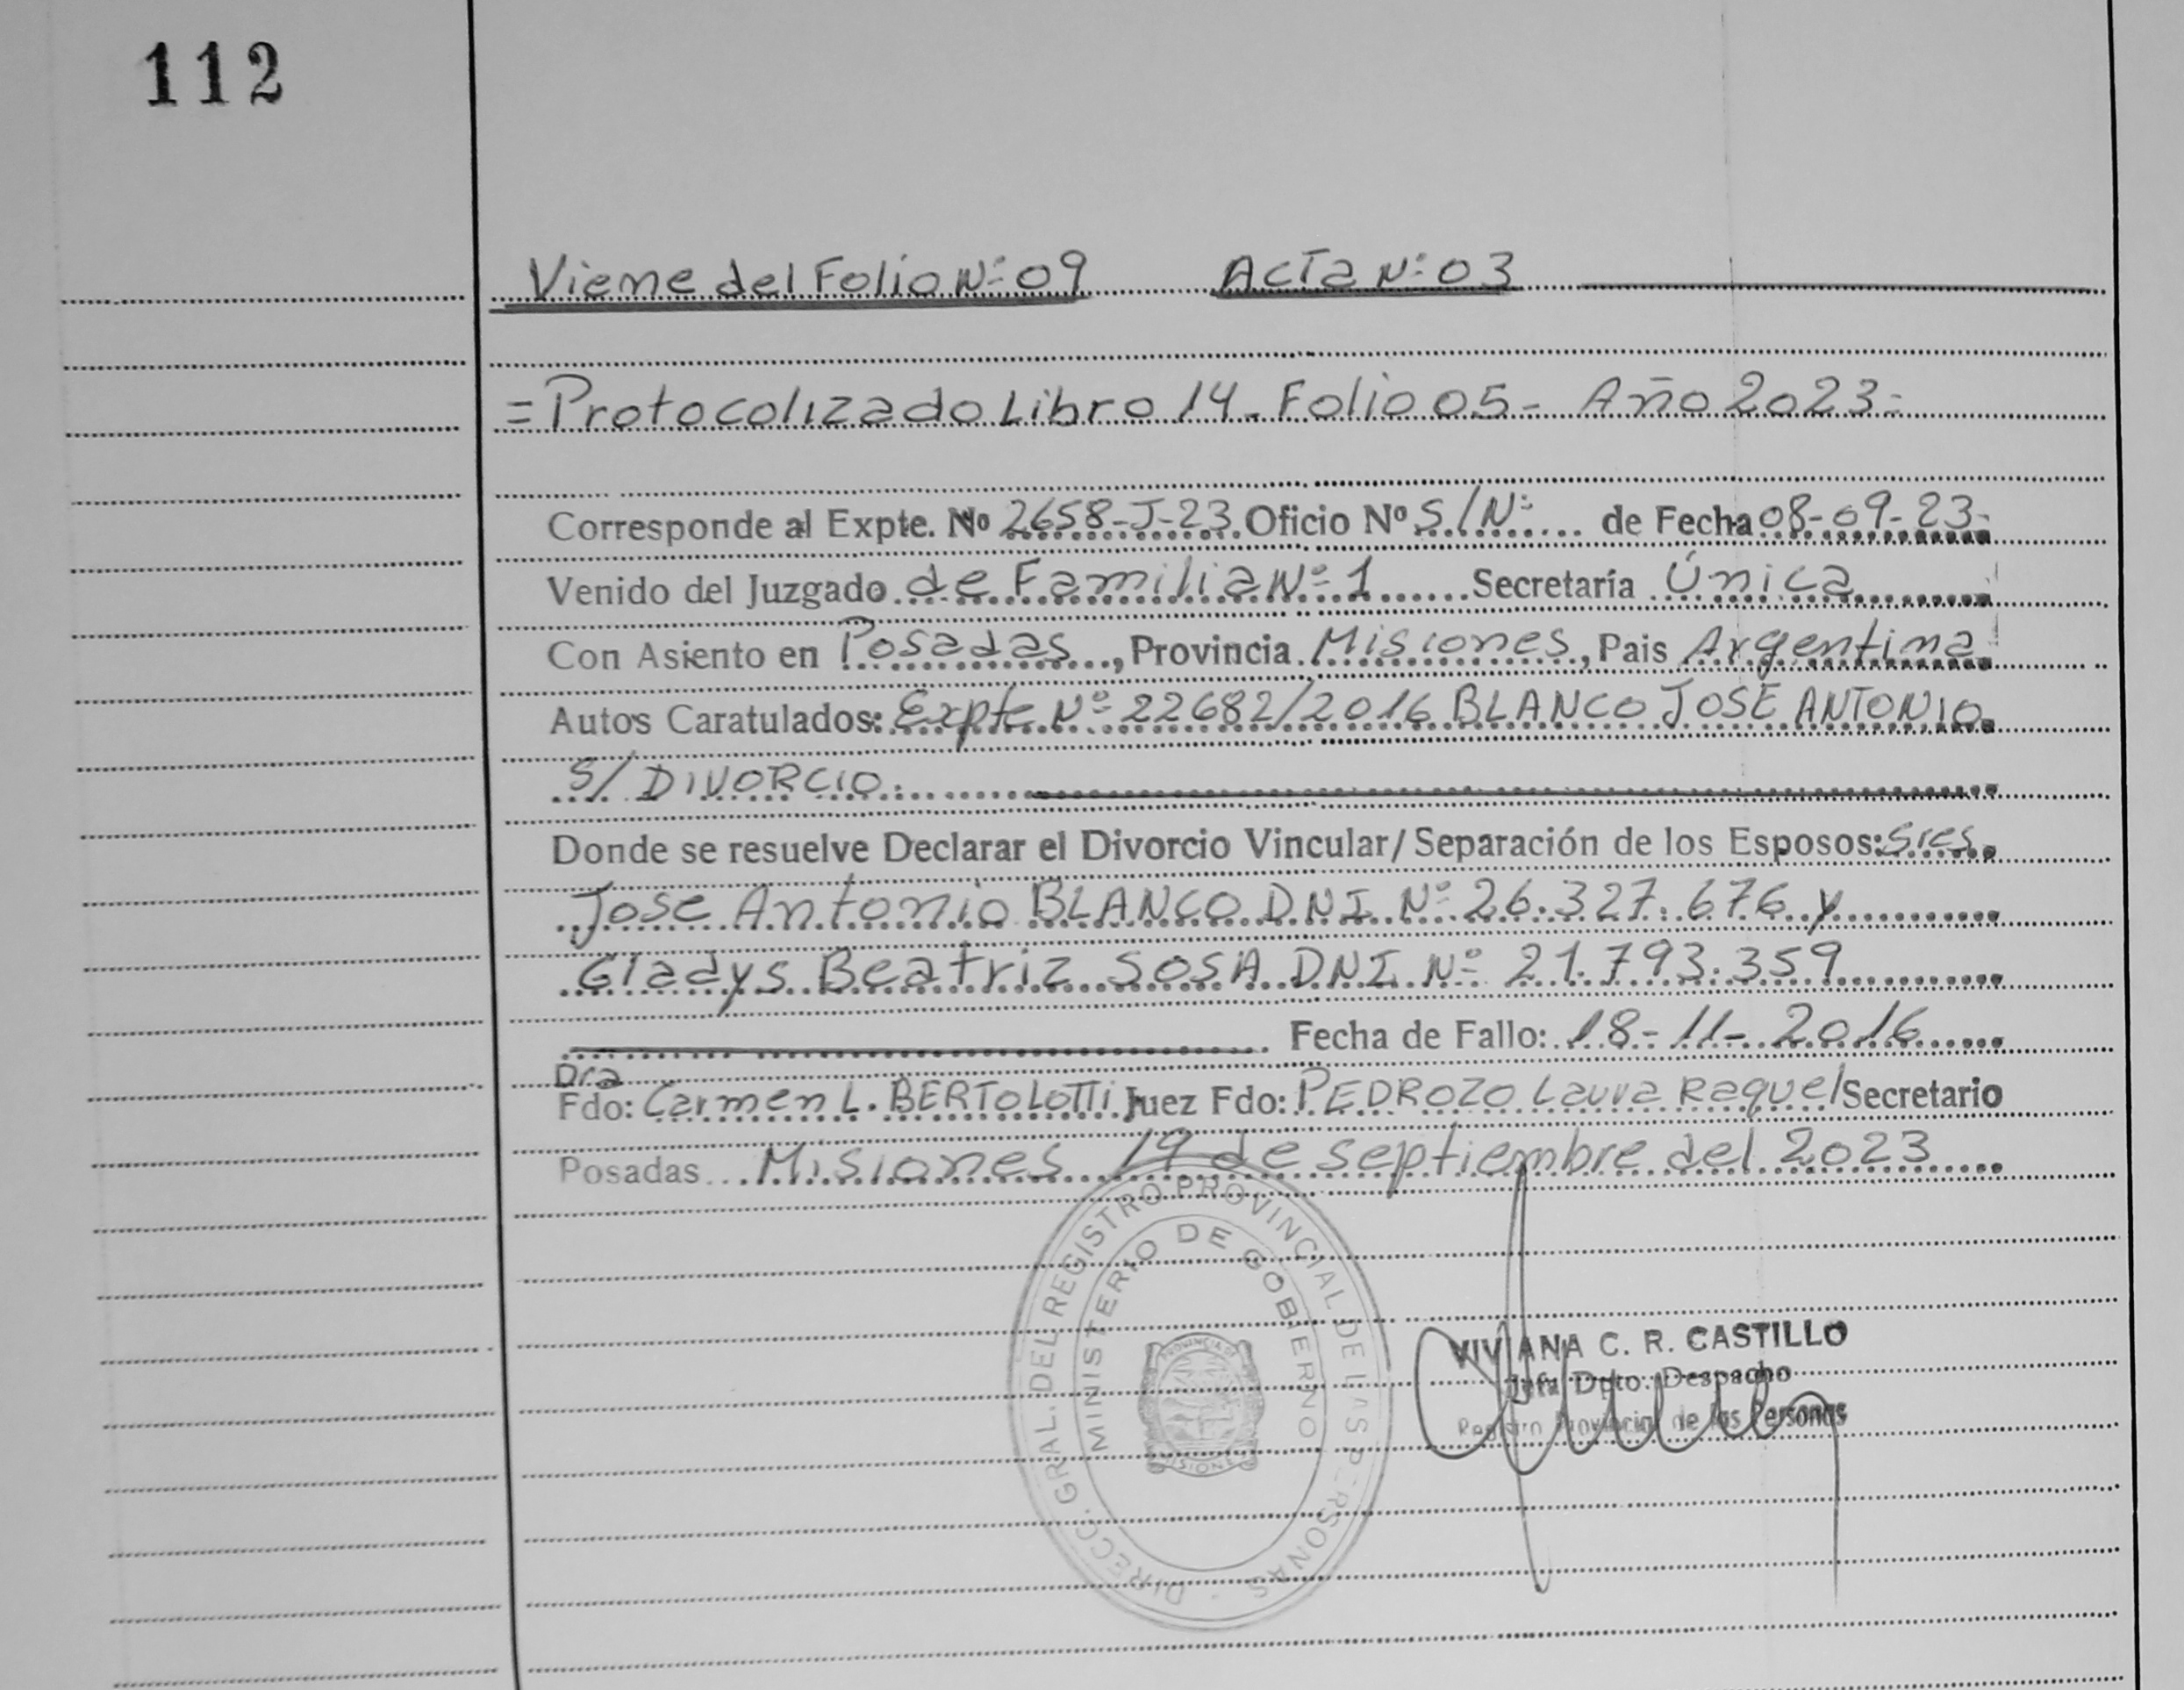 112
Viene del Folio Nº 09 Acta Nº 03
= Protocolizado Libro 14 - Folio 05 - Año 2023 -
Corresponde al Expte. Nº 2658-J-23. Oficio Nº S/Nº de Fecha 08-09-23-
Venido del Juzgado de Familia Nº 1 Secretaría Única
Con Asiento en Posadas, Provincia Misiones, Pais Argentina
Autos Caratulados: Expte Nº 22682/2016 BLANCO JOSE ANTONIO
S/ DIVORCIO.
Donde se resuelve Declarar el Divorcio Vincular/Separación de los Esposos: Sres.
Jose Antonio BLANCO DNI Nº 26.327.676 y
Gladys Beatriz SOSA DNI Nº 21.793.359
Fecha de Fallo: 18-11-2016
Dra
Fdo: Carmen L. BERTOLOTTI Juez Fdo: PEDROZO Laura Raquel Secretario
Posadas Misiones 19 de septiembre del 2023
DIRECC. GRAL. DEL REGISTRO PROVINCIAL DE LAS PERSONAS
MINISTERIO DE GOBIERNO
PROVINCIA DE
MISIONES
VIVIANA C. R. CASTILLO
Jefa Dpto. Despacho
Registro Provincial de las Personas